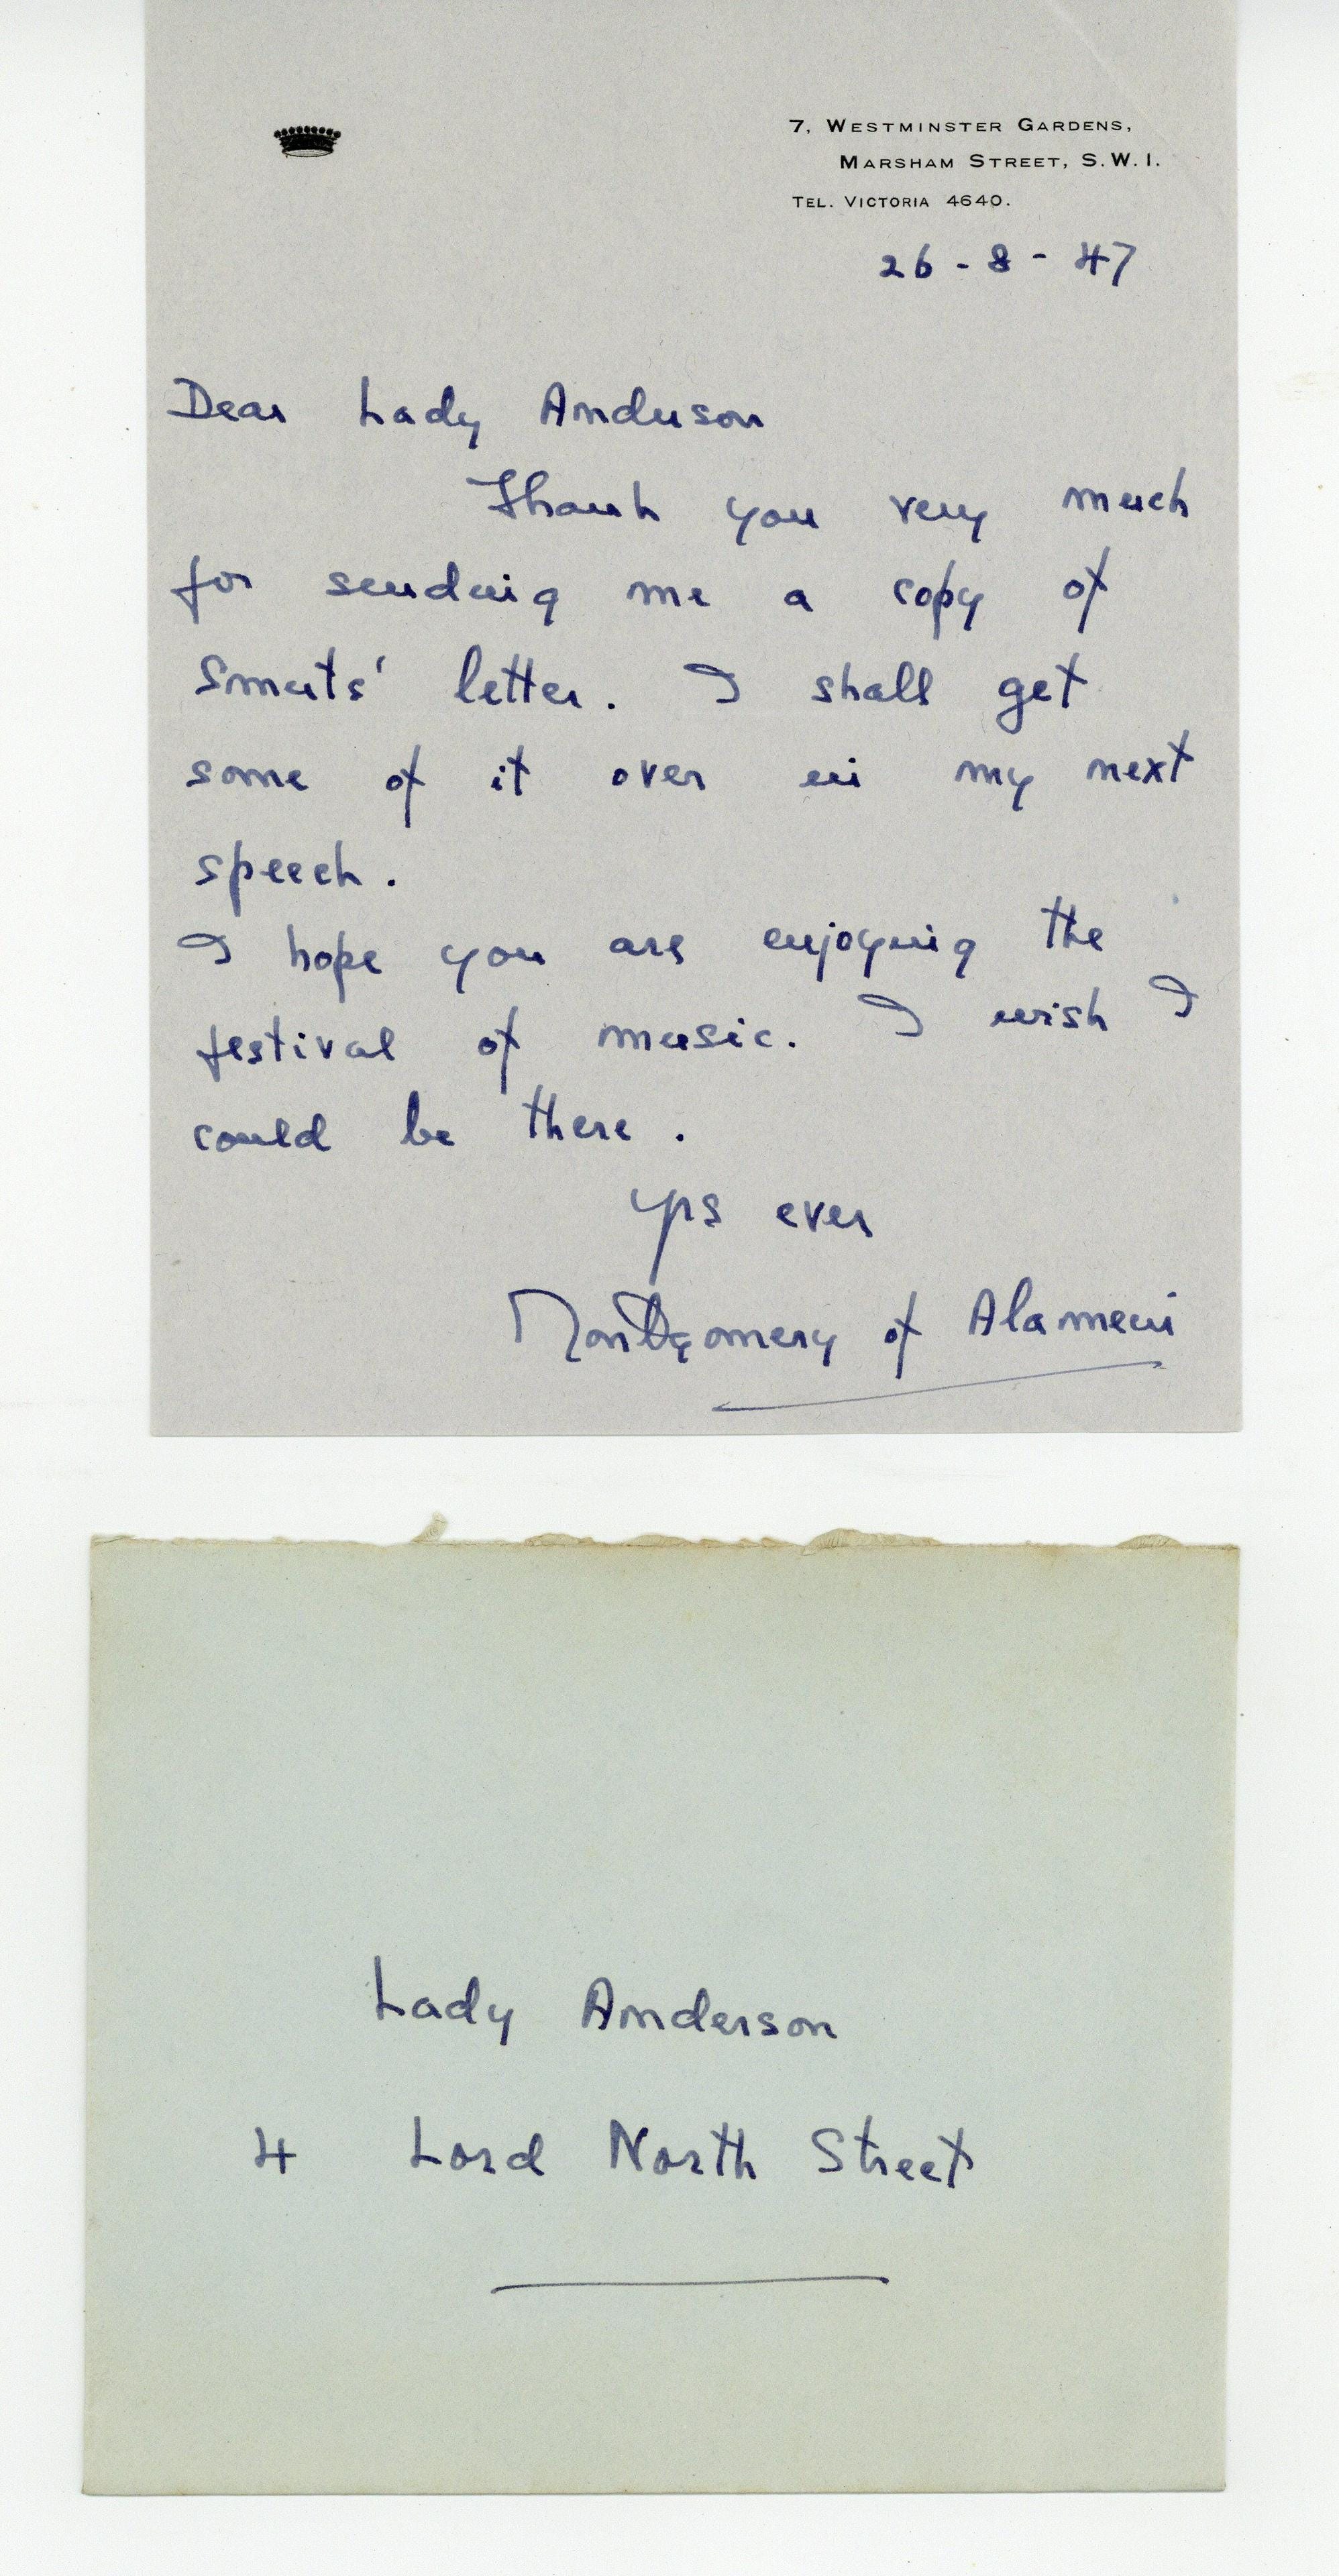 7, WESTMINSTER GARDENS,
MARSHAM STREET, S.W.1.
TEL. VICTORIA 4640.
26 - 8 - 47
Dear Lady Anderson
Thank you very much
for sending me a copy of
Smuts' letter. I shall get
some of it over in my next
speech.
I hope you are enjoying the
festival of music. I wish I
could be there.
Yrs ever
Montgomery of Alamein
Lady Anderson
4 Lord North Street